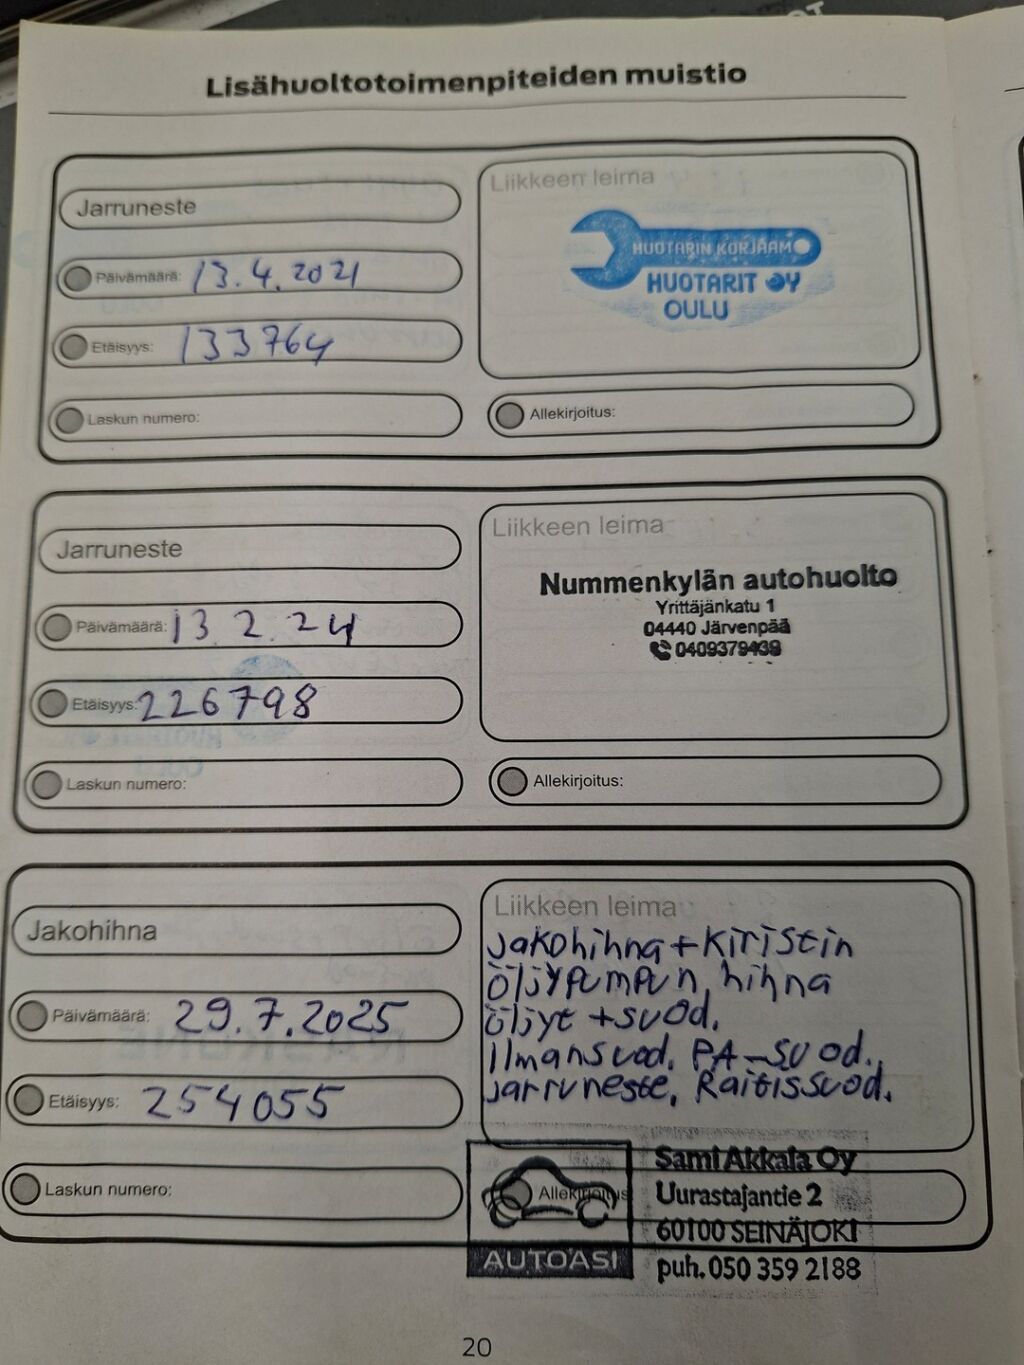 Lisähuoltotoimenpiteiden muistio
Jarruneste
Päivämäärä: 13.4.2021
Etäisyys: 133764
Laskun numero:
Liikkeen leima
HUOTARIN KORJAAMO
HUOTARIT OY
OULU
Allekirjoitus:
Jarruneste
Päivämäärä: 13.2.24
Etäisyys: 226798
Laskun numero:
Liikkeen leima
Nummenkylän autohuolto
Yrittäjänkatu 1
04440 Järvenpää
0409379439
Allekirjoitus:
Jakohihna
Päivämäärä: 29.7.2025
Etäisyys: 254055
Laskun numero:
Liikkeen leima
jakohihna + kiristin
öljypumpun hihna
öljyt + suod.
Ilmansuod. PA-suod.
jarruneste, Raitissuod.
Allekirjoitus
AUTOASI
Sami Akkala Oy
Uurastajantie 2
60100 SEINÄJOKI
puh. 050 359 2188
20